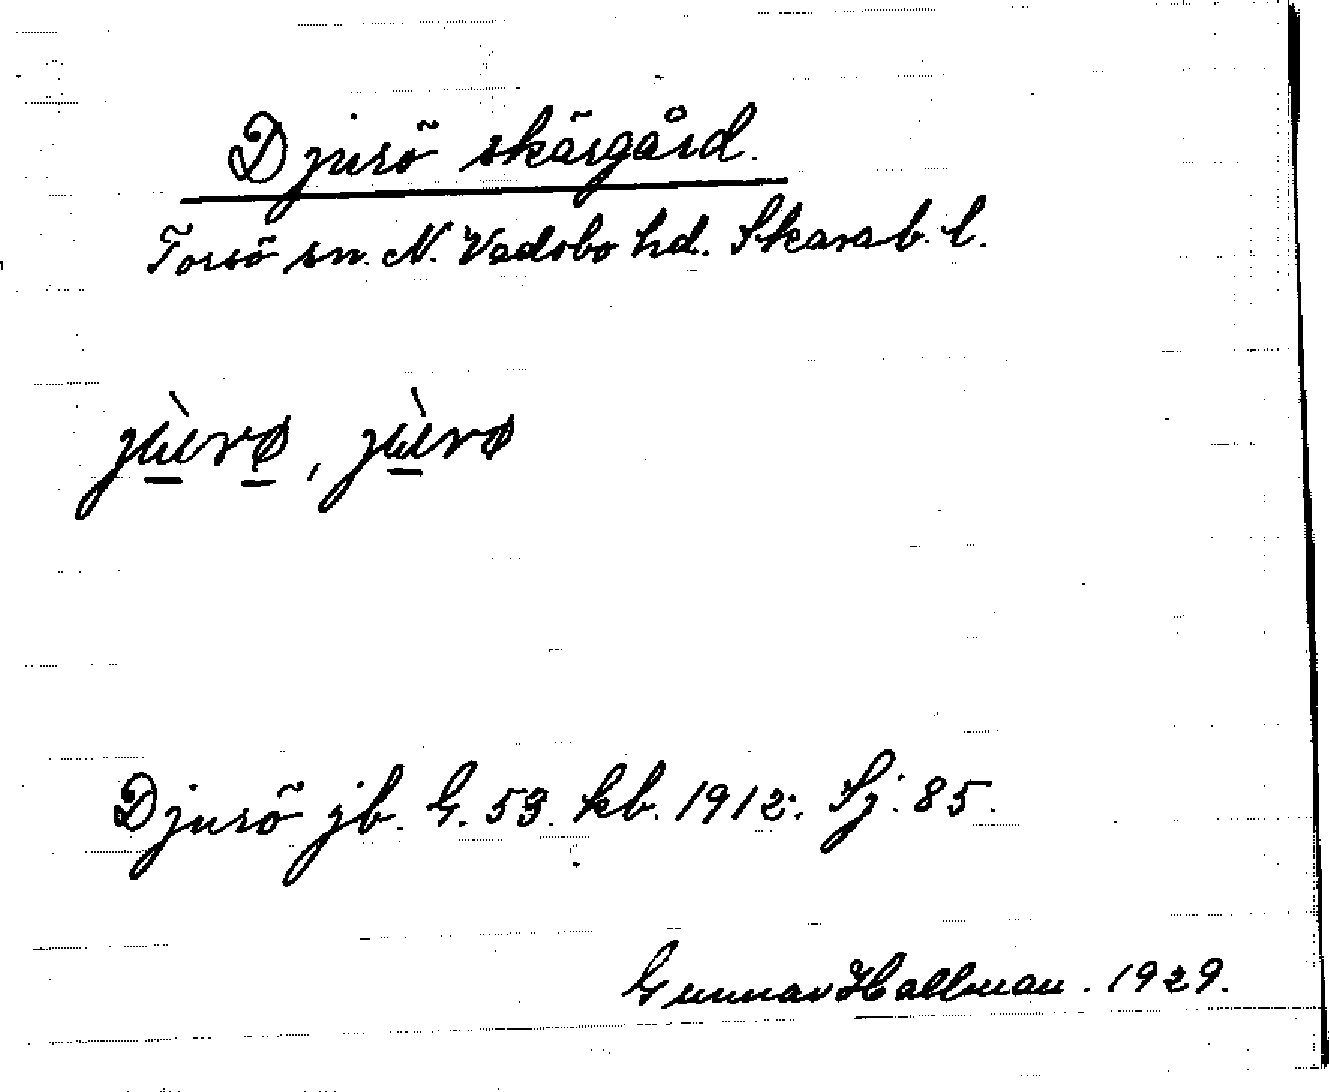 Djurö skärgård.
Torsö sn. N. Vadsbo hd. Skarab. l.
Djurö jb. G. 53. kb. 1912. Sj: 85.
Gunnar Hallman. 1929.